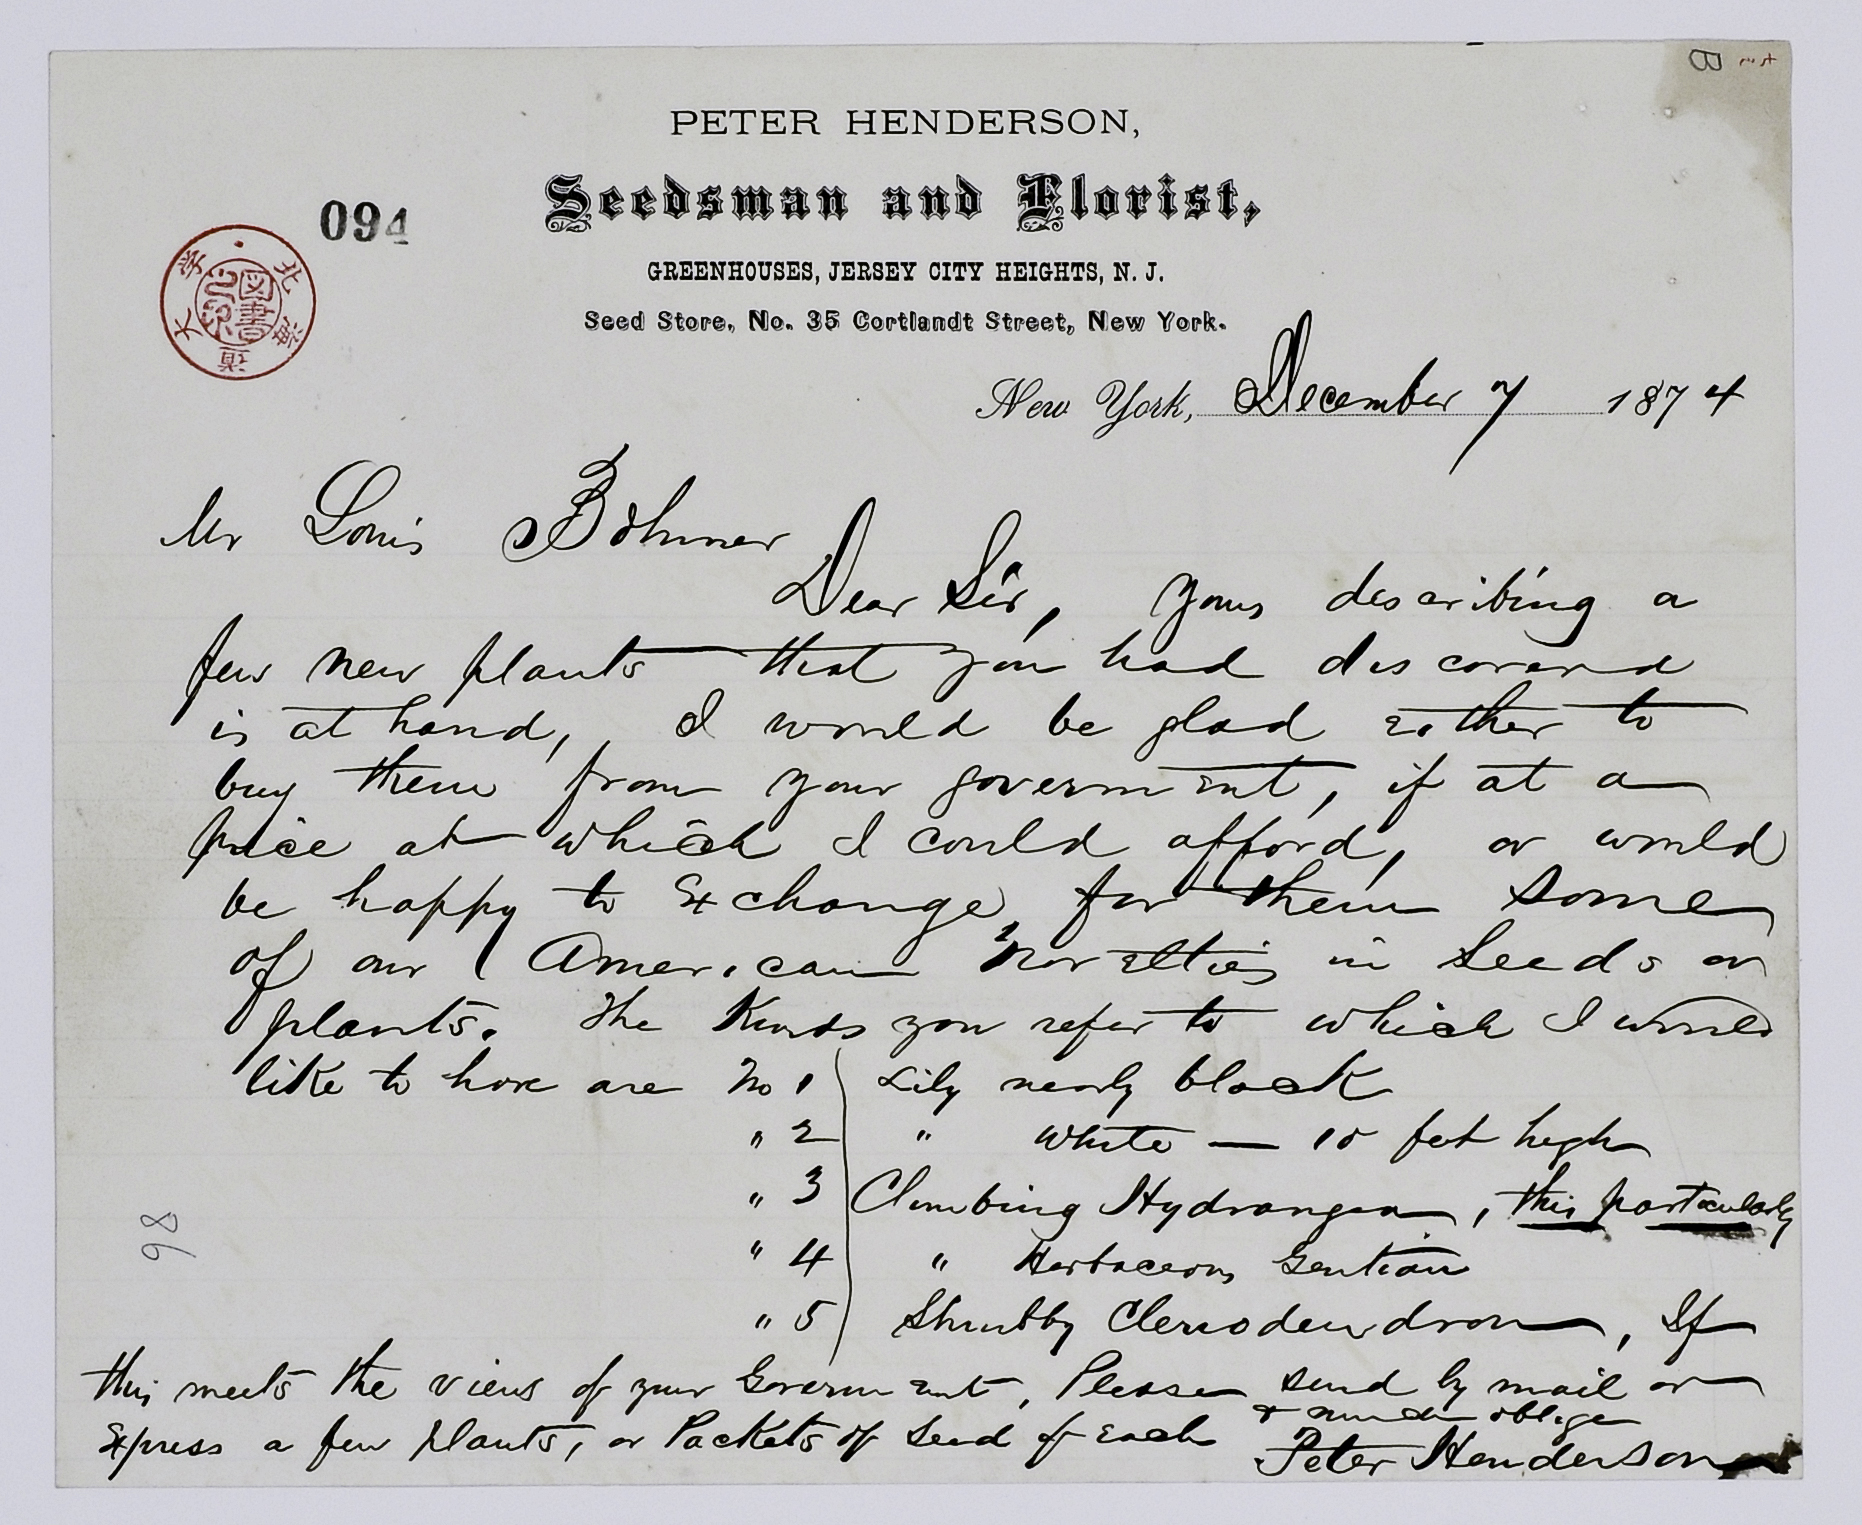 PETER HENDERSON,
Seedsman and Florist,
GREENHOUSES, JERSEY CITY HEIGHTS, N. J.
Seed Store, No. 35 Cortlandt Street, New York.
094
北海道大学
図書之印
New York, December 7 1874
Mr Louis Böhmer
Dear Sir, Yours describing a
few new plants that you had discovered
is at hand, I would be glad either to
buy them from your government, if at a
price at which I could afford, or would
be happy to Exchange for them some
of our American novelties in Seeds or
plants. The Kinds you refer to which I would
like to have are No 1 Lily nearly black
" 2 " white — 10 feet high
" 3 Climbing Hydrangea, this particularly
" 4 " Herbaceous Gentian
" 5 Shrubby Clerodendron, If
this meets the views of your Government, Please send by mail or
Express a few plants, or Packets of Seed of Each & much oblige
Peter Henderson
98
B